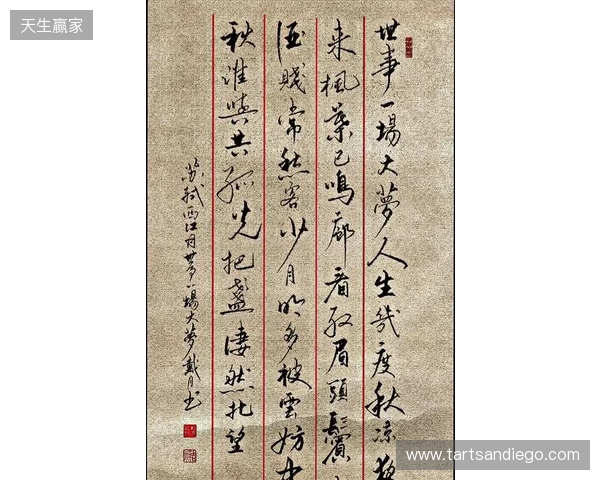 天生赢家
世事一場大夢人生幾度秋凉夜
来楓葉已鳴廊看取眉頭鬢
酒賤常愁客少月明多被雲妨中
秋誰與共孤光把盞凄然北望
苏轼西江月世事一場大夢戴月书
www.tartsandiego.com